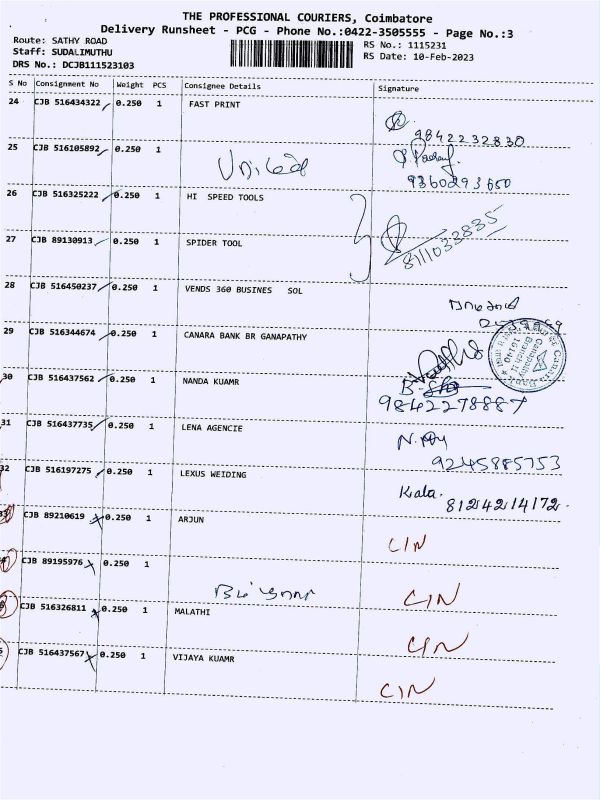 THE PROFESSIONAL COURIERS, Coimbatore
Delivery Runsheet - PCG - Phone No.:0422-3505555 - Page No.:3
Route: SATHY ROAD
RS No.: 1115231
Staff: SUDALIMUTHU
RS Date: 10-Feb-2023
DRS No.: DCJB111523103
S No Consignment No Weight PCS Consignee Details Signature
24 CJB 516434322 0.250 1 FAST PRINT
9842232830
25 CJB 516105892 0.250 1
9360293650
26 CJB 516325222 0.250 1 HI SPEED TOOLS
27 CJB 89130913 0.250 1 SPIDER TOOL
8111033835
28 CJB 516450237 0.250 1 VENDS 360 BUSINES SOL
29 CJB 516344674 0.250 1 CANARA BANK BR GANAPATHY
Canara Bank
Ganapathy
Branch II
16140
30 CJB 516437562 0.250 1 NANDA KUAMR
9842278887
31 CJB 516437735 0.250 1 LENA AGENCIE
9245885753
32 CJB 516197275 0.250 1 LEXUS WEIDING
Kala.
8124214172.
33 CJB 89210619 0.250 1 ARJUN
CIN
CJB 89195976 0.250 1
CIN
CJB 516326811 0.250 1 MALATHI
CIN
CJB 516437567 0.250 1 VIJAYA KUAMR
CIN